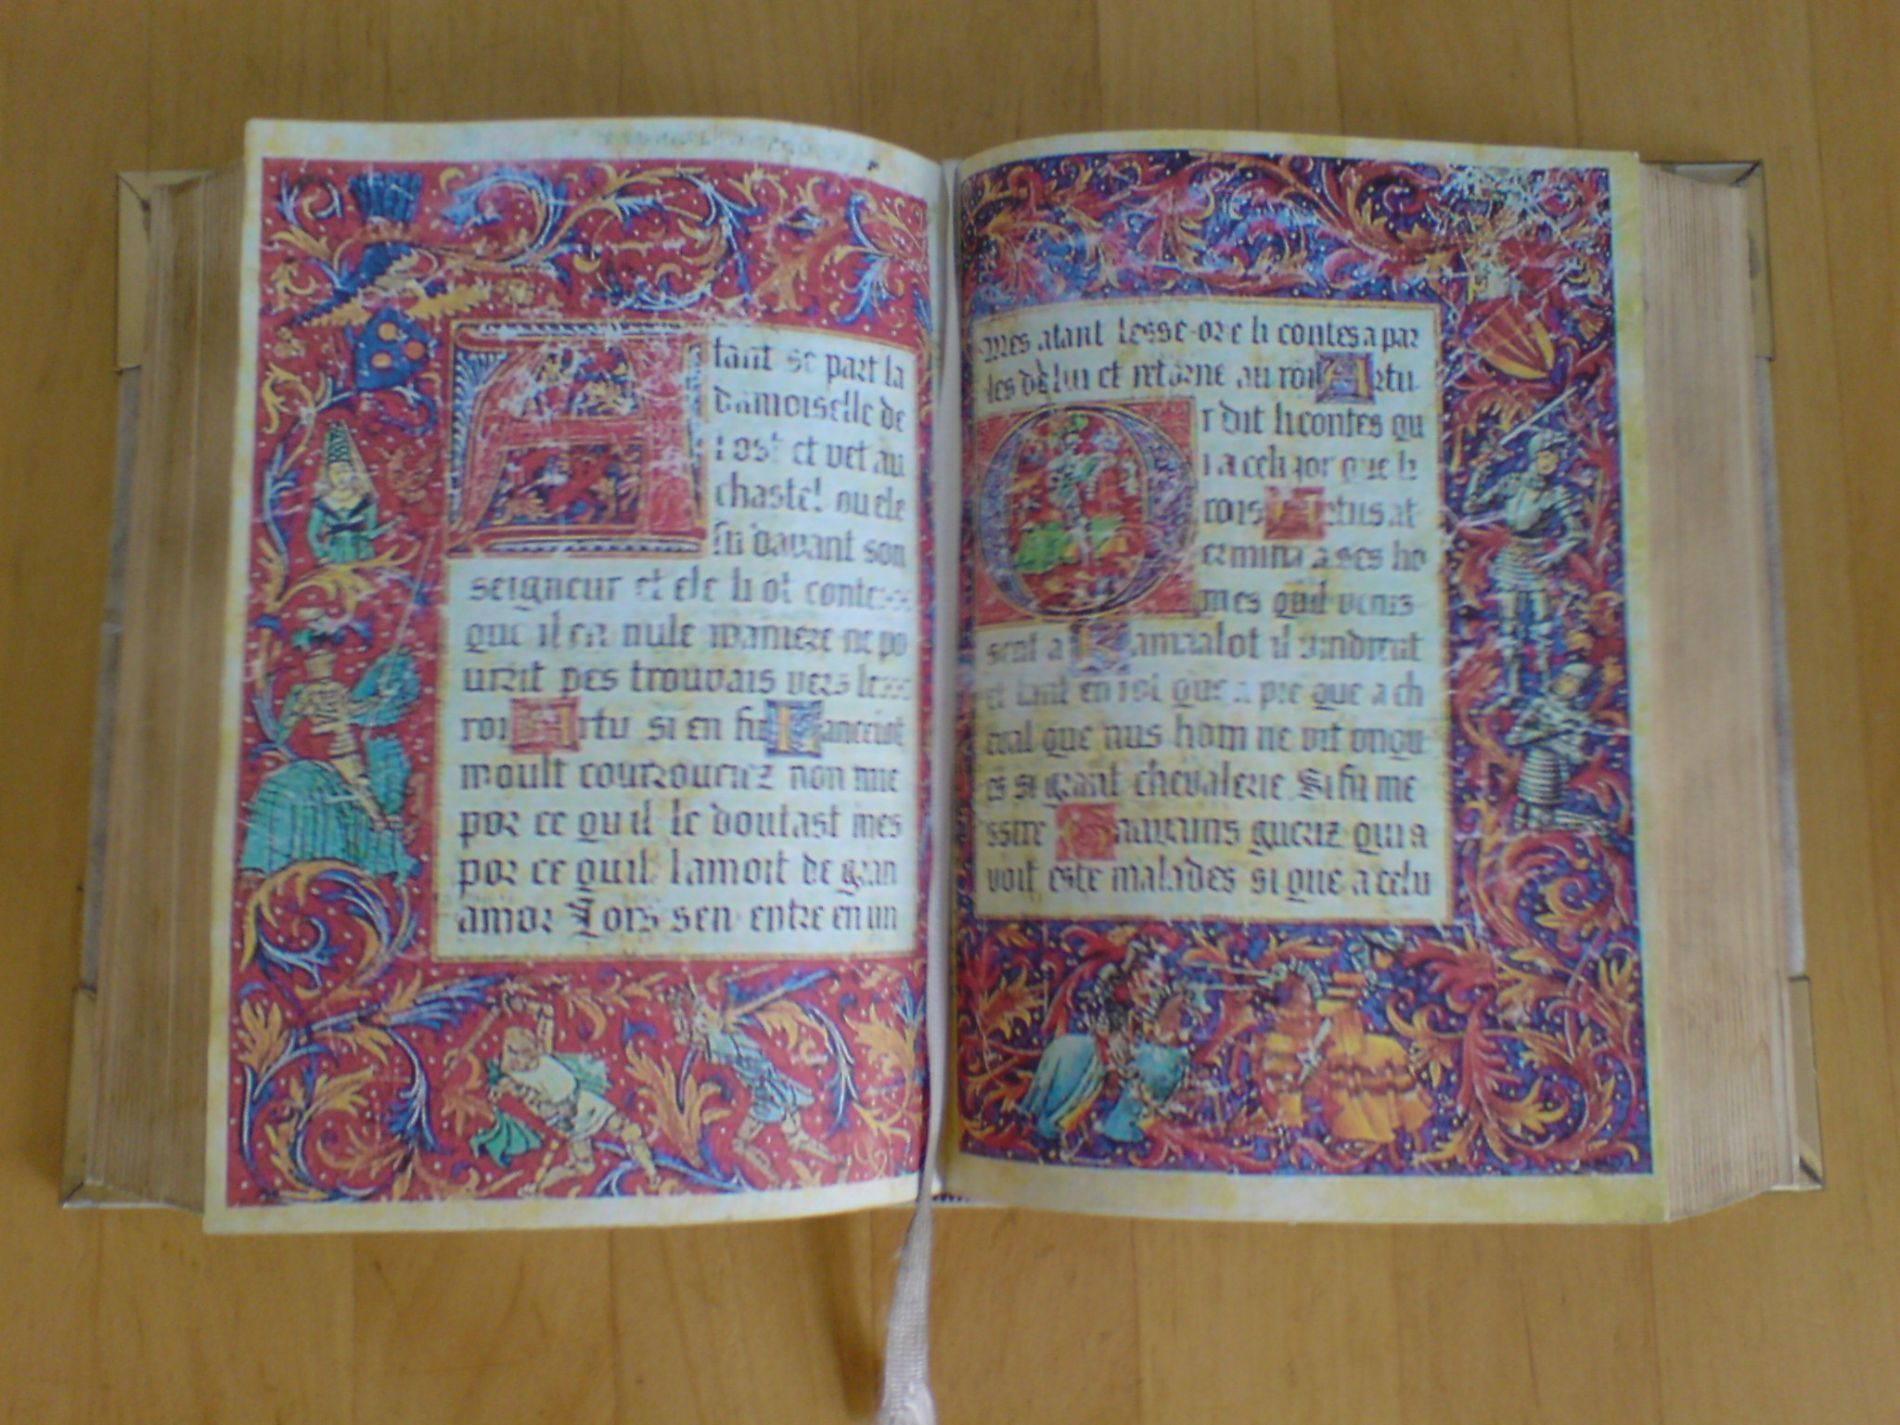 Atant se part la
damoiselle de
lost et vet au
chastel ou ele
fu davant son
seigneur et ele li ot conte
que il en nule maniere ne po
urrit pes trouvais vers
roi Artu si en fu Lancelot
moult courrouciez non mie
por ce quil le doutast mes
por ce quil lamoit de gran
amor Lors sen entre en un
Mes atant lesse ore li contes a par
les de lui et retorne au roi Artu
Or dit li contes qu
i a celi jor que li
rois Artus at
ermina a ses ho
mes quil venis
sent a Kamaalot il vindrent
et tant en i ot que a pie que a ch
eval que nus hom ne vit onqu
es si grant chevalerie Si fu me
ssire Gauvains gueriz qui a
voit este malades si que a celu